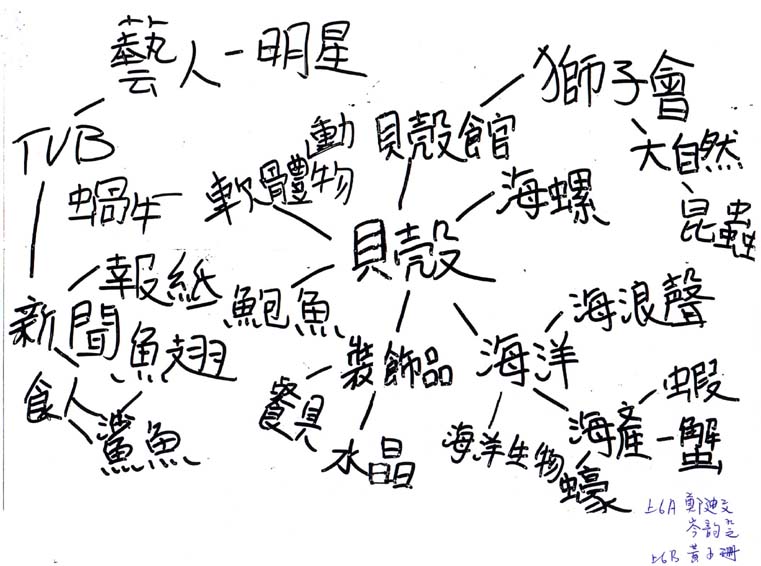 藝人
明星
獅子會
TVB
動
貝殼館
大自然
蝸牛
軟體物
海螺
昆蟲
貝殼
報紙
鮑魚
海浪聲
新聞
魚翅
裝飾品
海洋
蝦
食人
餐具
海產
蟹
鯊魚
水晶
海洋生物
蠔
上6A 鄭迪文
岑韵
上6B 黃子珊